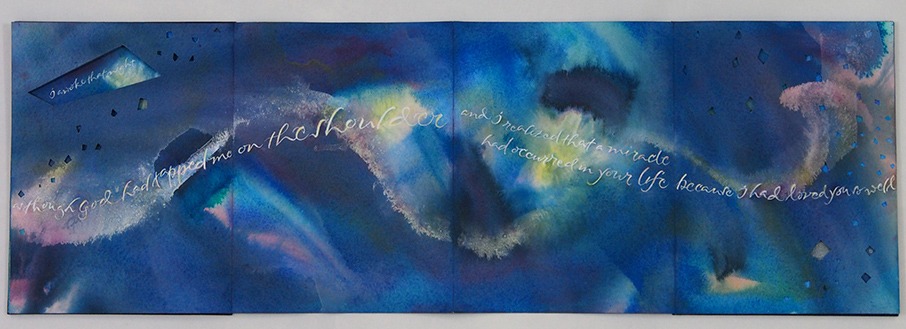 I awoke that night
as though God had tapped me on the shoulder
and I realized that a miracle
had occurred in your life because I had loved you so well